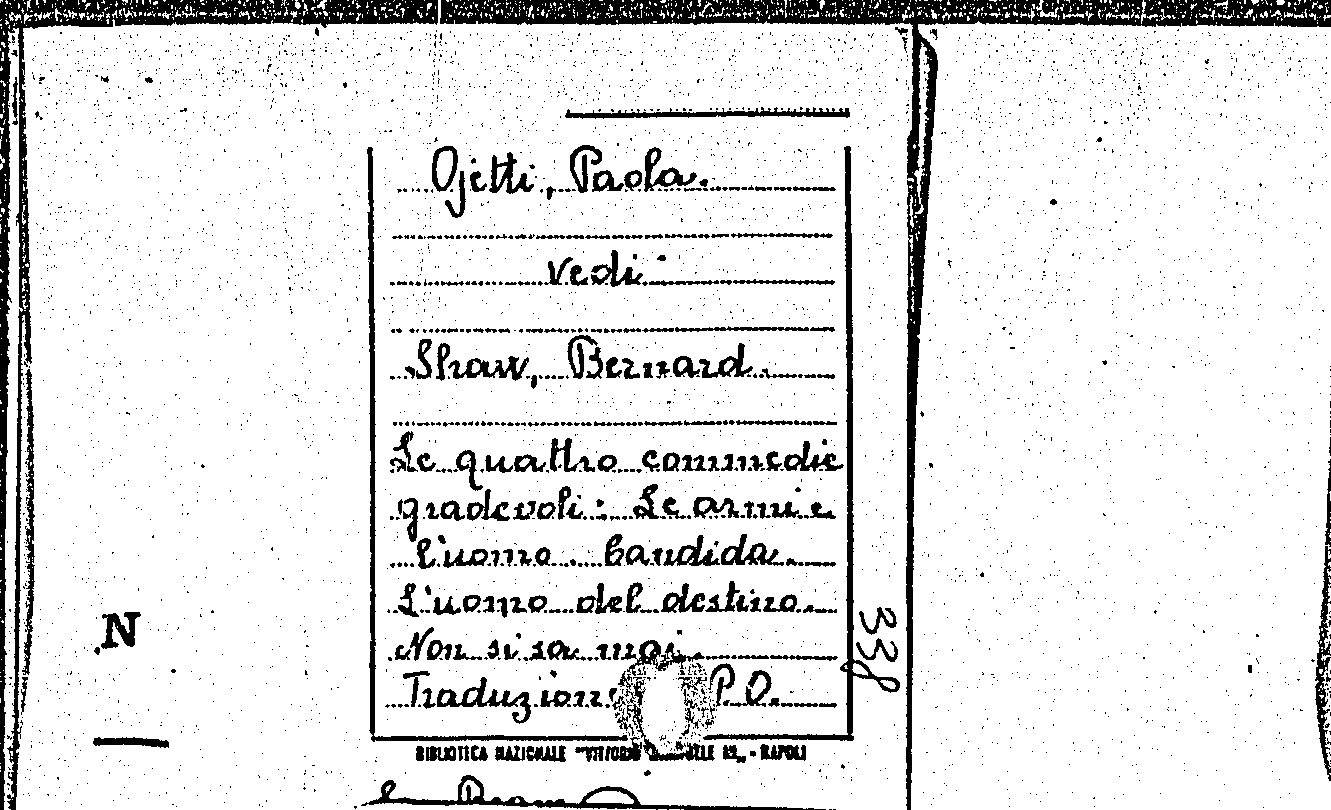 Ojetti, Paola.
vedi
Shaw, Bernard.
Le quattro commedie
gradevoli: Le armi e
l'uomo. Candida.
L'uomo del destino.
Non si sa mai.
Traduzione P.O.
338
N
BIBLIOTECA NAZIONALE "VITTORIO EMANUELE III" - NAPOLI